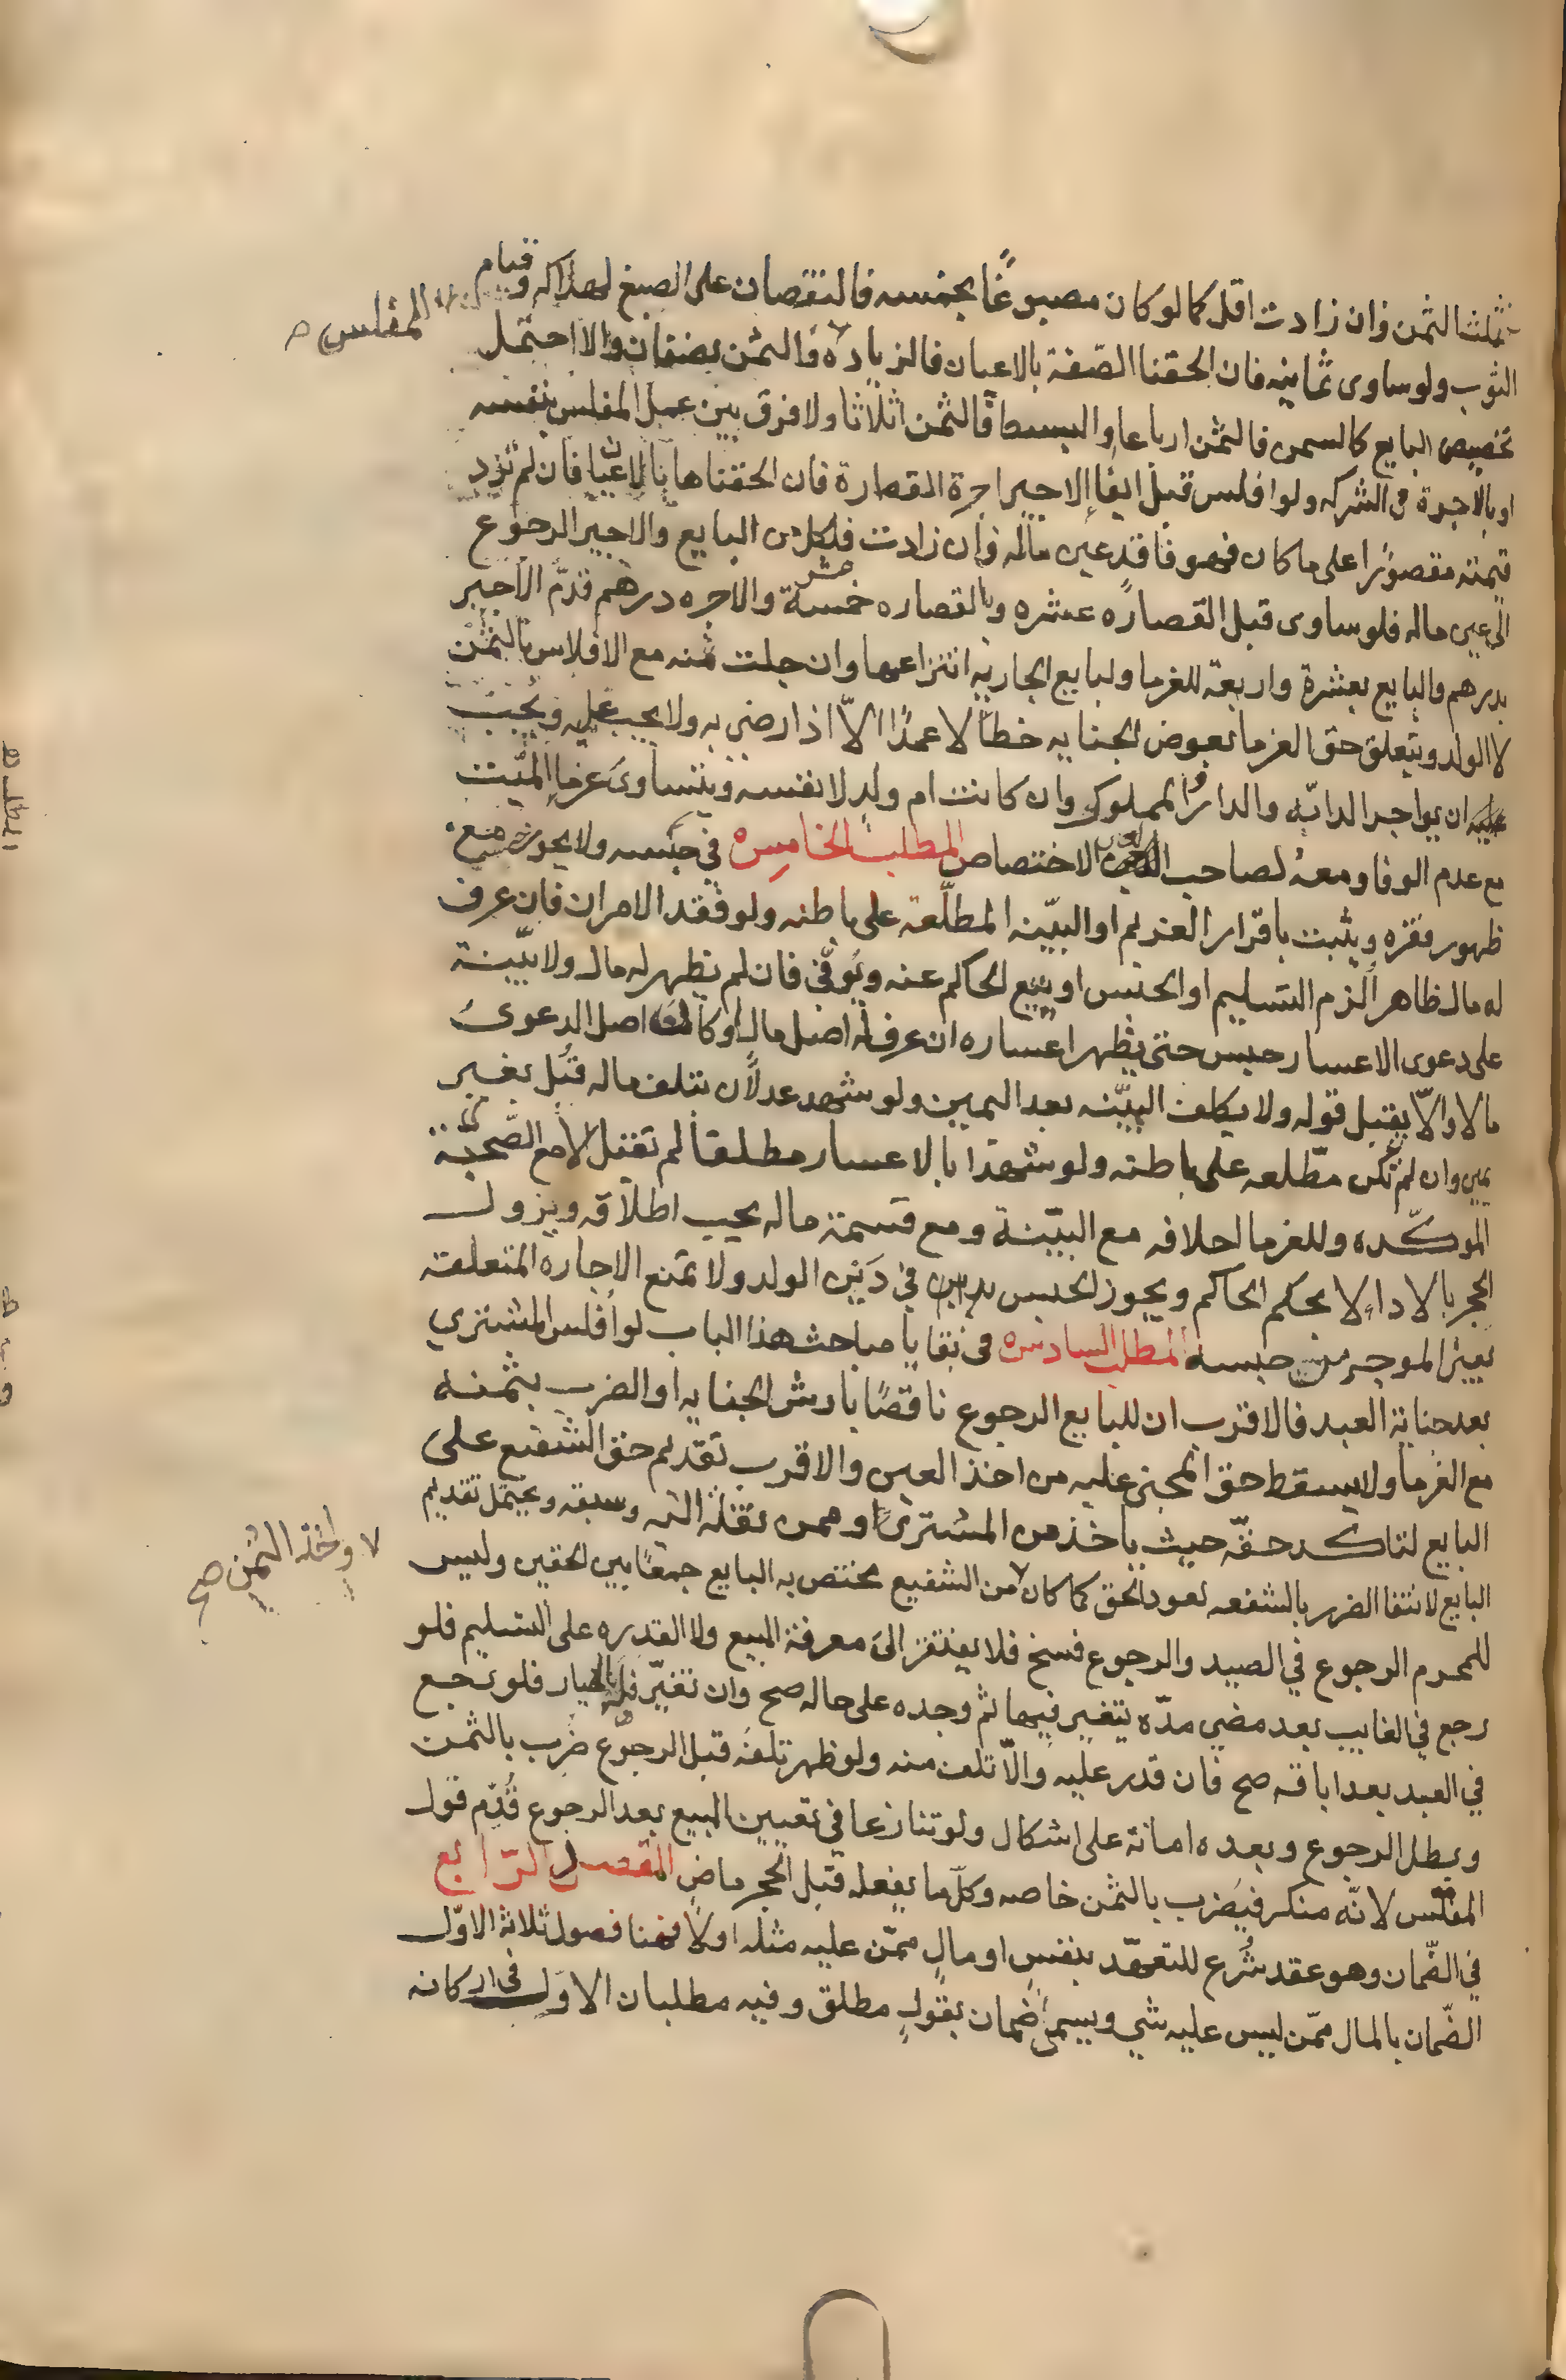 فثلثا الثمن وان زادت اقل كما لو كان مصبوغًا بخمسه فالنقصان على الصبغ لهلاكه وقيام
الثوب ولو ساوى ثمانيه فان الحقنا الصّفة بالاعيان فالزياده والثمن نصفان والا احتمل
المفلس
تخصيص البايع كالسمن فالثمن ارباعا والبسط فالثمن اثلاثا ولا فرق بين عمل المفلس بنفسه
او بالاجرة فى الشركه ولو افلس قبل ايفا الاجير اجرة القصارة فان الحقناها بالاعيان فان لم تزد
قيمته مقصورًا على ما كان فهو فاقد عين ماله وان زادت فلكل من البايع والاجير الرجوع
الى عين ماله فلو ساوى قبل القصاره عشره وبالقصاره خمسة عشر والاجره درهم قدّم الاجير
بدرهم والبايع بعشرة واربعة للغرما ولبايع الجاريه انتزاعها وان حلت ثمنه مع الافلاس بالثمن
لا الولد ويتعلق حق الغرما بعوض الجنايه خطأ لا عمدًا الاّ اذا رضى به ولا يجب عليه ويجب
عليه ان يواجر الدابّه والدار والمملوك وان كانت ام ولدٍ لا نفسه ويتساوى غرما الميّت
مع عدم الوفا ومعهُ لصاحب العين الاختصاص المطلب الخامس في حبسه ولا يجوز مع
ظهور فقره ويثبت باقرار الغريم او البيّنه المطلّعه على باطنه ولو فقد الامران فان عرف
له مال ظاهر أُلزم التسليم او الحبس او يبيع الحاكم عنه ويُوفّى فان لم يظهر له مال ولا بيّنة
على دعوى الاعسار حبس حتى يظهر اعساره ان عرف له اصل مال او كان اصل الدعوى
مالا والاّ يقبل قوله ولا يكلف البيّنه بعد اليمين ولو شهد عدلان بتلف ماله قُبل بغير
يمين وان لم تكن مطّلعه على باطنه ولو شهدا بالاعسار مطلقا لم تقبل الا مع الصّحبة
الموكّده وللغرما احلافه مع البيّنة ومع قسمة ماله يجب اطلاقه ويزول
الحجر بالاداء لا بحكم الحاكم ويجوز الحبس في دَين الولد ولا تمنع الاجاره المتعلقة
بعين الموجر من حبسه المطلب السادس فى بقايا مباحث هذا الباب لو افلس المشتري
بعد جناية العبد فالاقرب ان للبايع الرجوع ناقصًا بارش الجنايه او الضرب بثمنه
مع الغرما ولا يسقط حق المجنى عليه من اخذ العين والاقرب تقديم حق الشفيع على
البايع لتاكد حقّه حيث ياخذ من المشترى وممن نقله اليه وسبقه ويحتمل تقديم
البايع لانتفا الضرر بالشفعه لعود الحق كما كان من الشفيع يختص به البايع جمعًا بين الحقين وليس
٧ واخذ الثمن صح
للمحرم الرجوع في الصيد والرجوع فسخ فلا يفتقر الى معرفة المبيع ولا القدره على التسليم فلو
رجع في الغايب بعد مضي مدّه يتغير فيها ثم وجده على حاله صح وان تغيّر فله الخيار فلو رجع
في العبد بعد اباقه صح فان قدر عليه والاّ تلف منه ولو ظهر تلفه قبل الرجوع ضرب بالثمن
وبطل الرجوع وبعده امانة على اشكال ولو تنازعا في تعيين المبيع بعد الرجوع قُدّم قول
المفلّس لانّه منكر فيضرب بالثمن خاصه وكلّ ما يفعله قبل الحجر ماضٍ المقصد الرّابع
في الضّمان وهو عقد شُرع للتعهّد بنفس او مالٍ ممّن عليه مثله اولا فهنا فصول ثلاثه الاوّل
الضّمان بالمال ممّن ليس عليه شي ويسمى ضمان بقولٍ مطلق وفيه مطلبان الاوّل فى اركانه